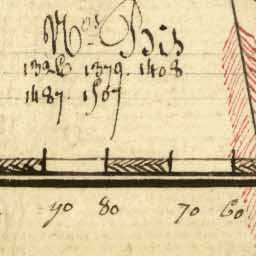 Nos Bis
1378 1379. 1408
1487. 1567
90 80 70 60